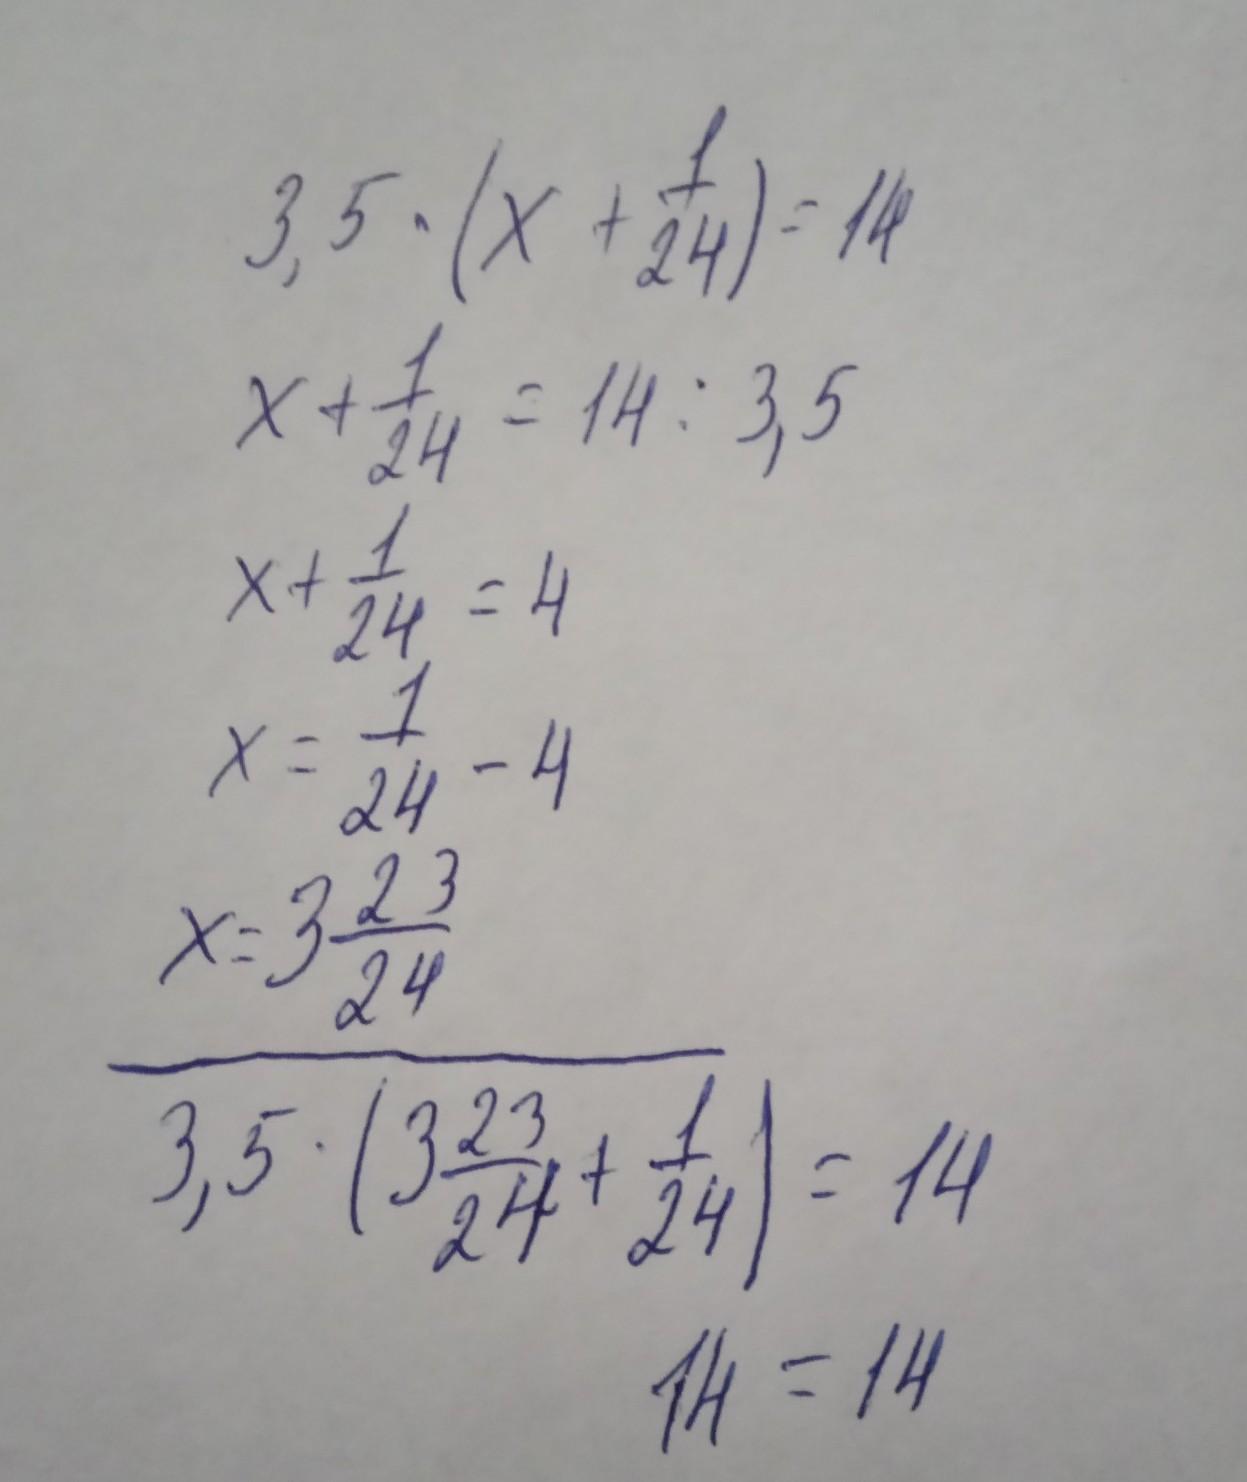 3,5 · (x + 1/24) = 14
x + 1/24 = 14 : 3,5
x + 1/24 = 4
x = 1/24 - 4
x = 3 23/24
3,5 · (3 23/24 + 1/24) = 14
14 = 14